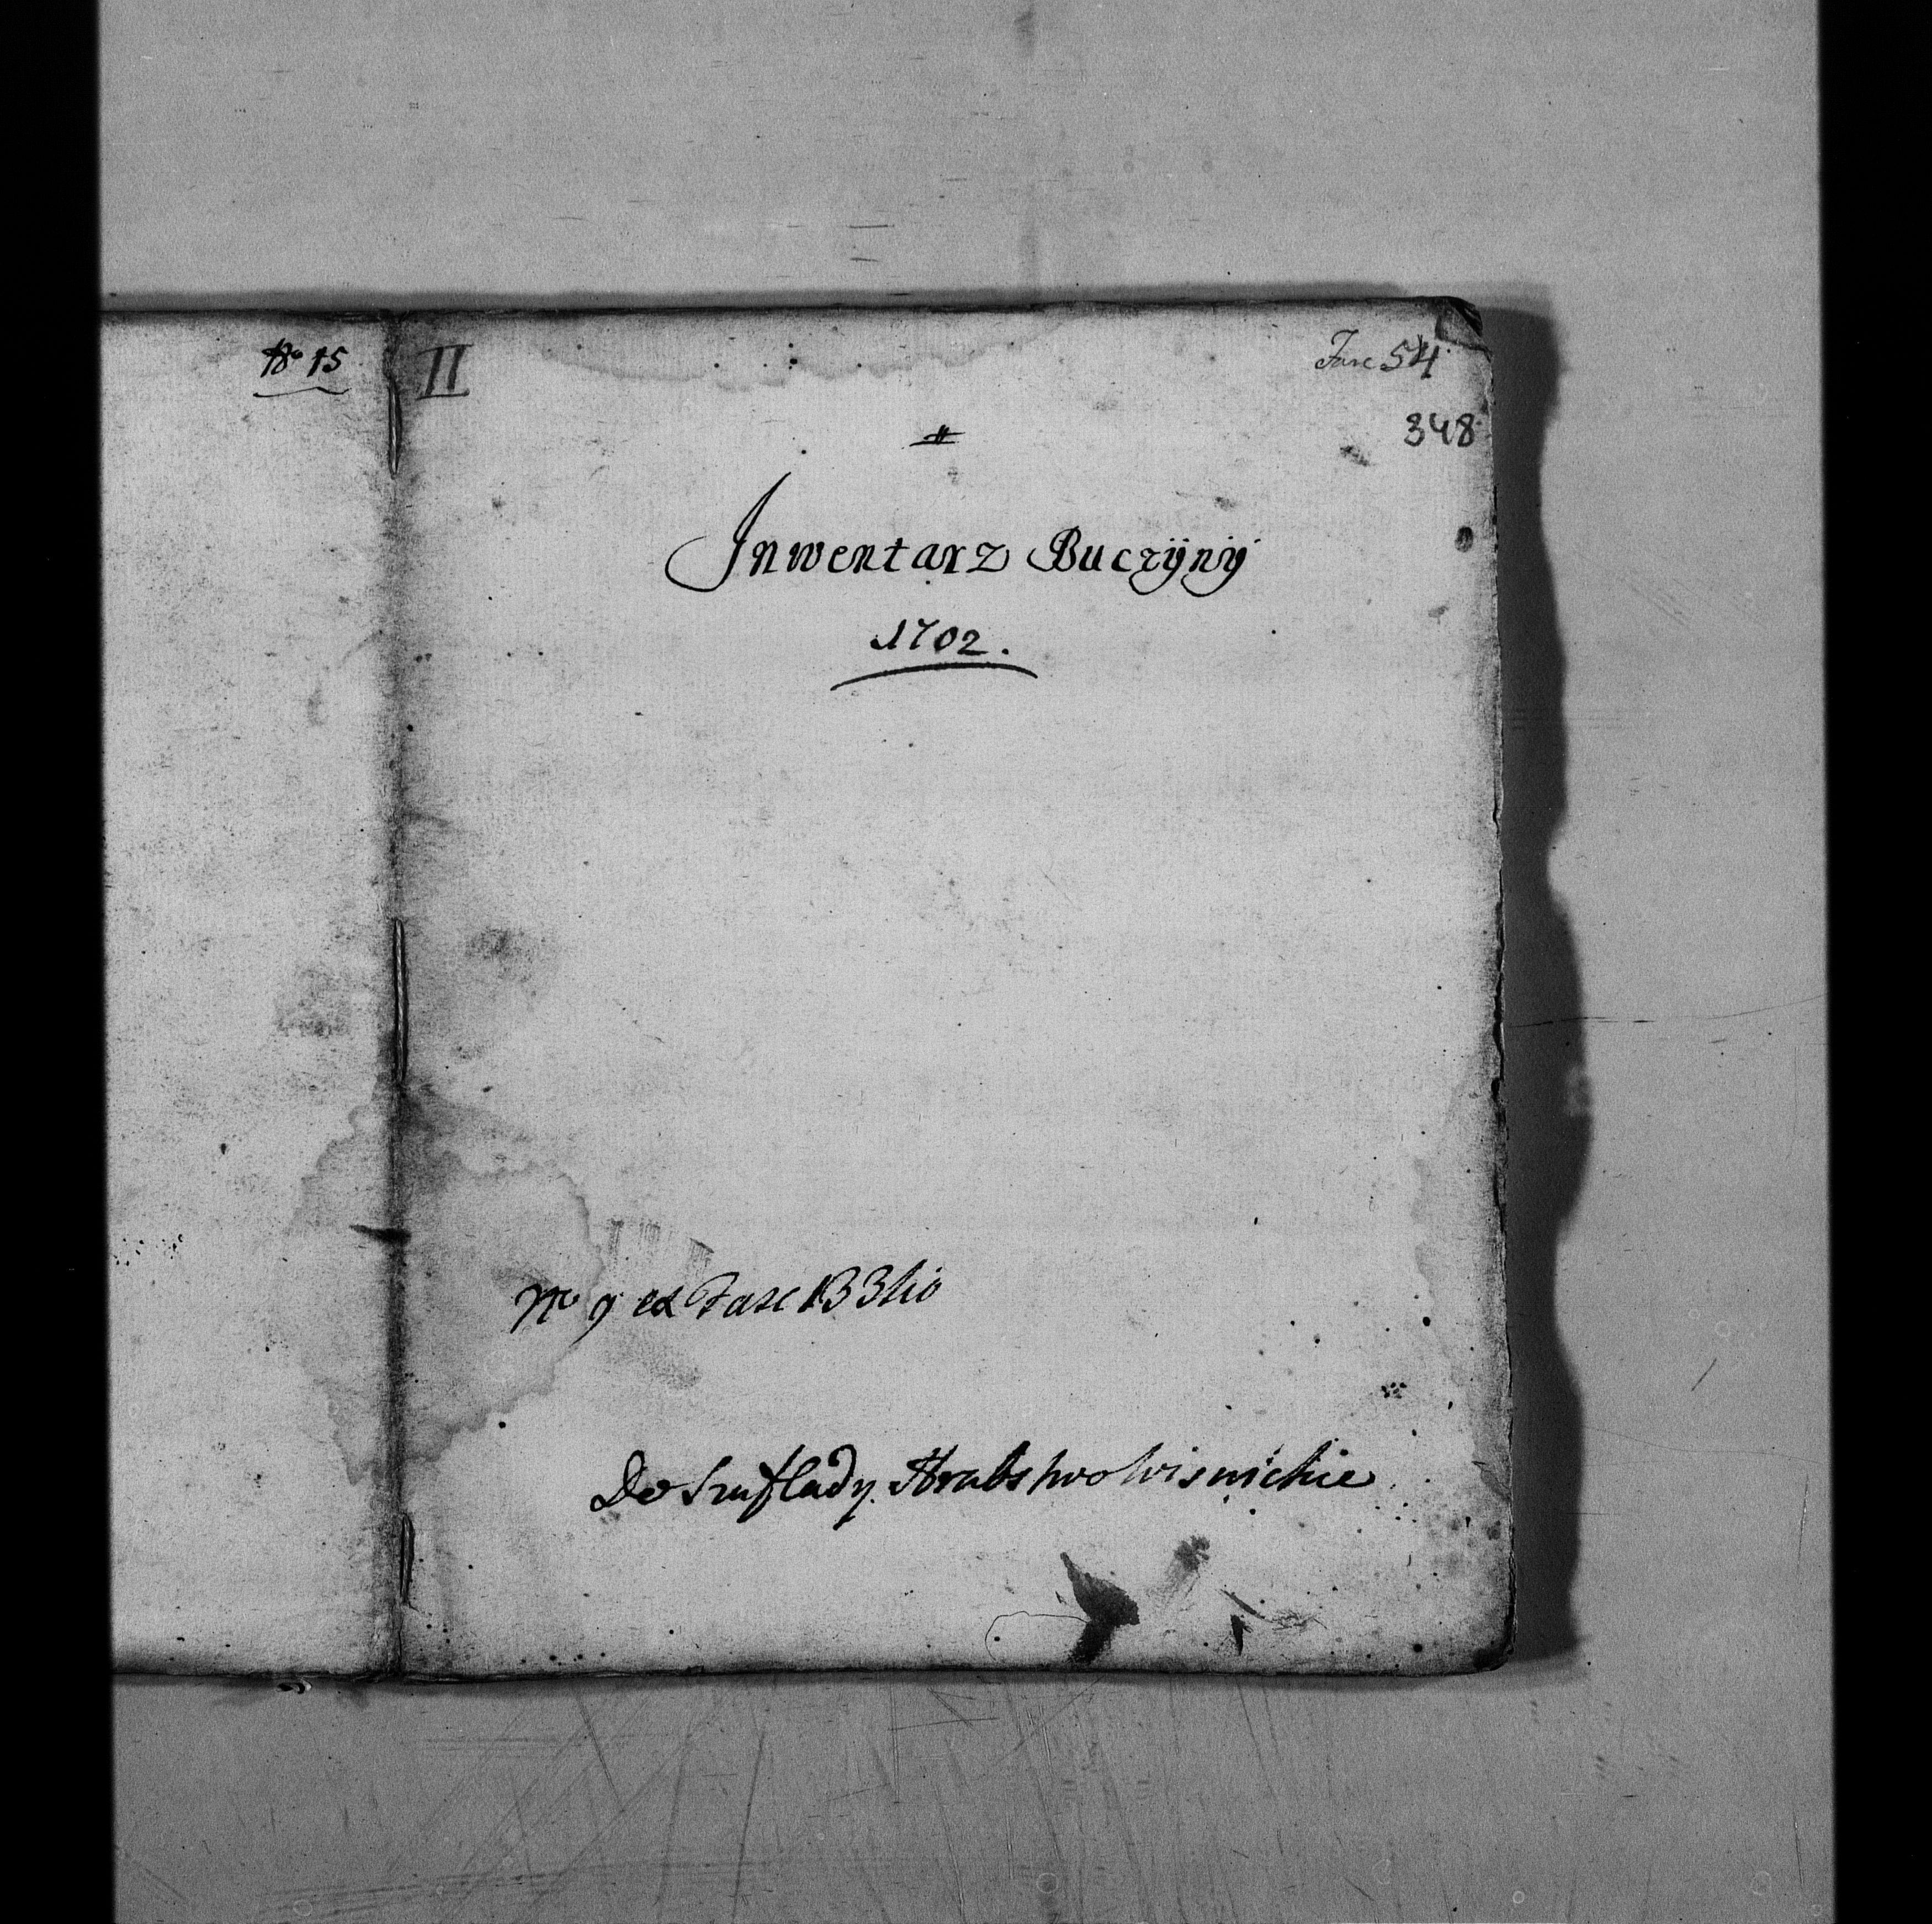 No 15
II
Fasc 54
348
Inwentarz Buczÿnÿ
1702.
No 9 ex Fasc 133tio
Do Szuflady Hrabstwo Wisnickie